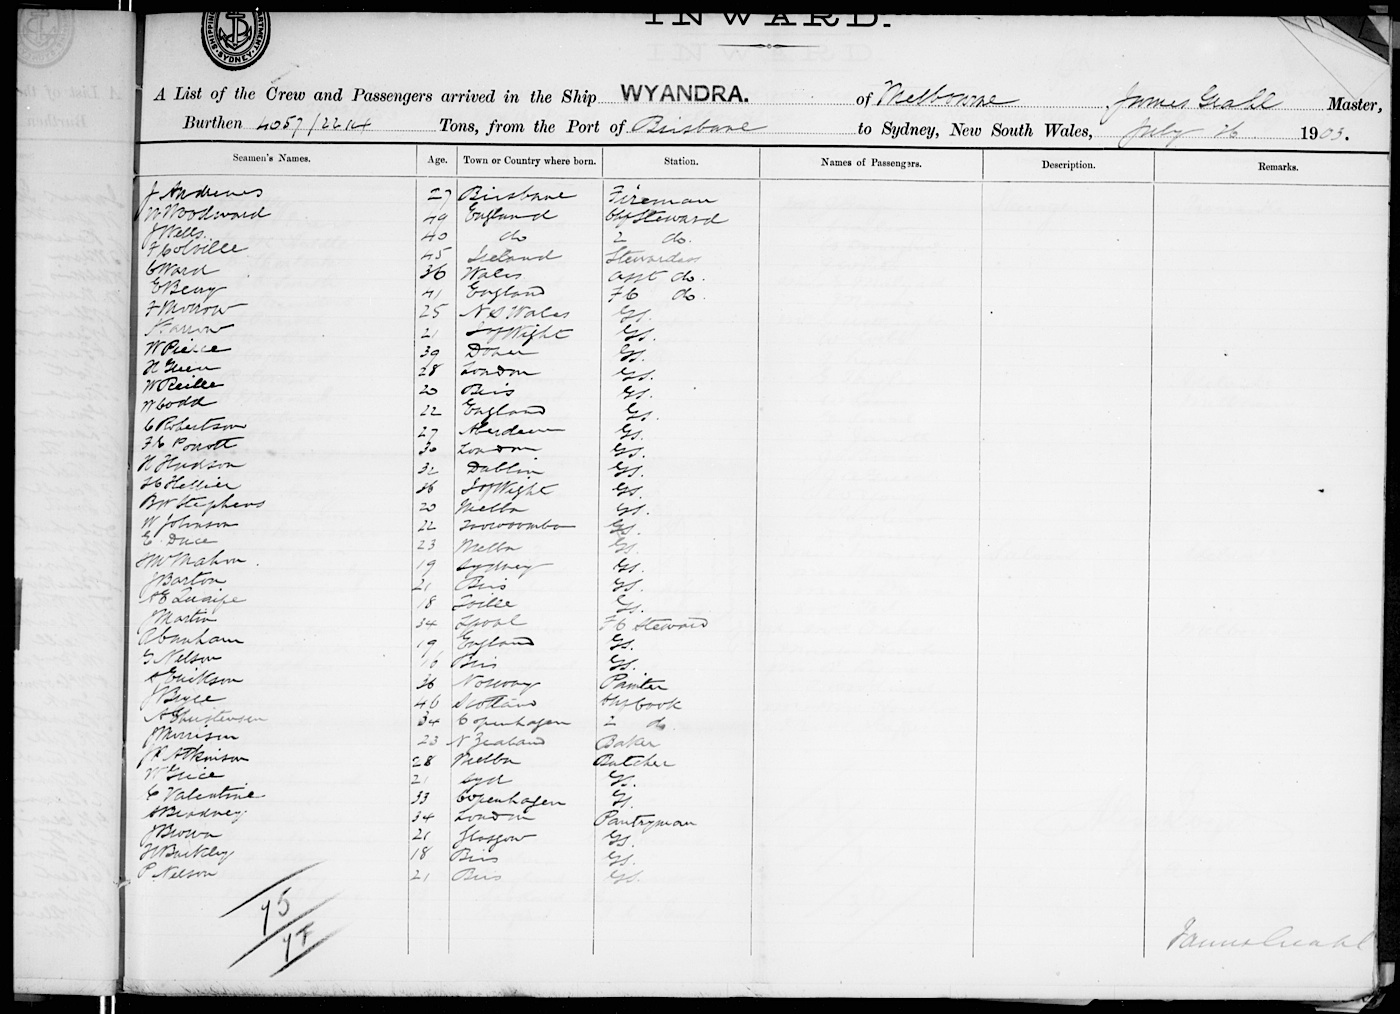 INWARD.
SHIPPING DEPARTMENT SYDNEY
A List of the Crew and Passengers arrived in the Ship WYANDRA. of Melbourne, James Master,
Burthen 4057/2214 Tons, from the Port of Brisbane to Sydney, New South Wales, July 26 1903.
Seamen's Names. Age. Town or Country where born. Station. Names of Passengers. Description. Remarks.
J Andrews 27 Brisbane Fireman
W Woodward 49 England Chf Steward
J Wells 40 do 2 do.
F Colville 45 Ireland Stewardess
C Ward 36 Wales asst do.
E Berry 41 England FC do.
F Morrow 25 N S Wales Gs.
21 I of Wight Gs.
W Pierce 39 Dover Gs.
H Green 28 London Gs.
W Reille 20 Bris Gs.
W Codd 22 England Gs.
C Robertson 27 Aberdeen Gs.
30 London Gs.
H Hudson 32 Dublin Gs.
H Hellier 36 I of Wight Gs.
B W Stephens 20 Melbn Gs.
W Johnson 22 Toowoomba Gs.
E Duce 23 Melbn Gs.
J McMahon. 19 Sydney Gs.
J Barton 21 Bris Gs.
A E Quaife 18 Gs.
J Martin 34 Lpool FC Steward
19 England Gs.
G Nelson Bris Gs.
A Erikson 36 Norway Painter
J Bryce 46 Scotland Chf Cook
A Christensen 34 Copenhagen 2 do
J Morrison 23 N Zealand Baker
J H Atkinson 28 Melbn Butcher
W Grice 21 Syd Gs.
C Valentine 33 Copenhagen Gs.
A Bradney 34 London Pantryman
J Brown 21 Glasgow Gs.
H Buckley 18 Bris Gs.
P. Nelson 21 Bris Gs.
75
James